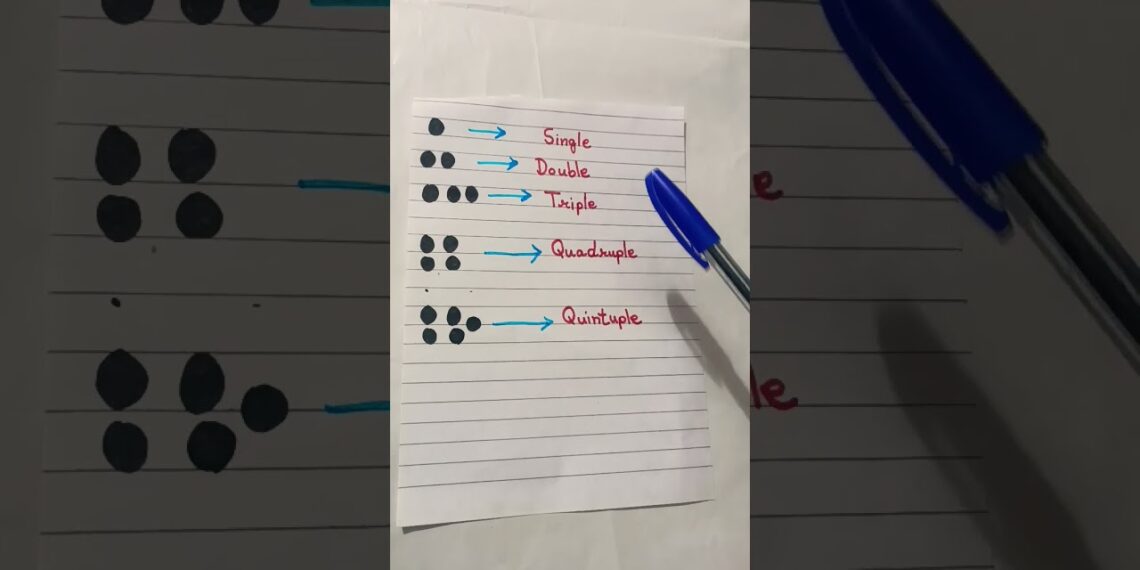 Single
Double
Triple
Quadruple
Quintuple